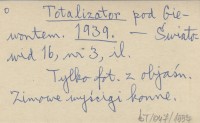 Totalizator pod Gie-
wontem. 1939. — Świato-
wid 16, nr 3, il.
Tylko fot. z objaśn.
Zimowe wyścigi konne.